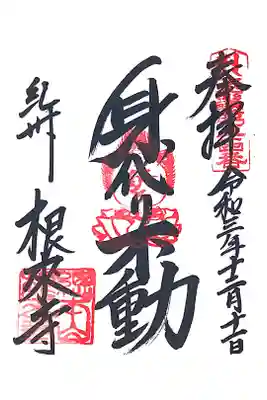 奉拝
令和三年十二月十一日
身代り不動
紀州
根來寺